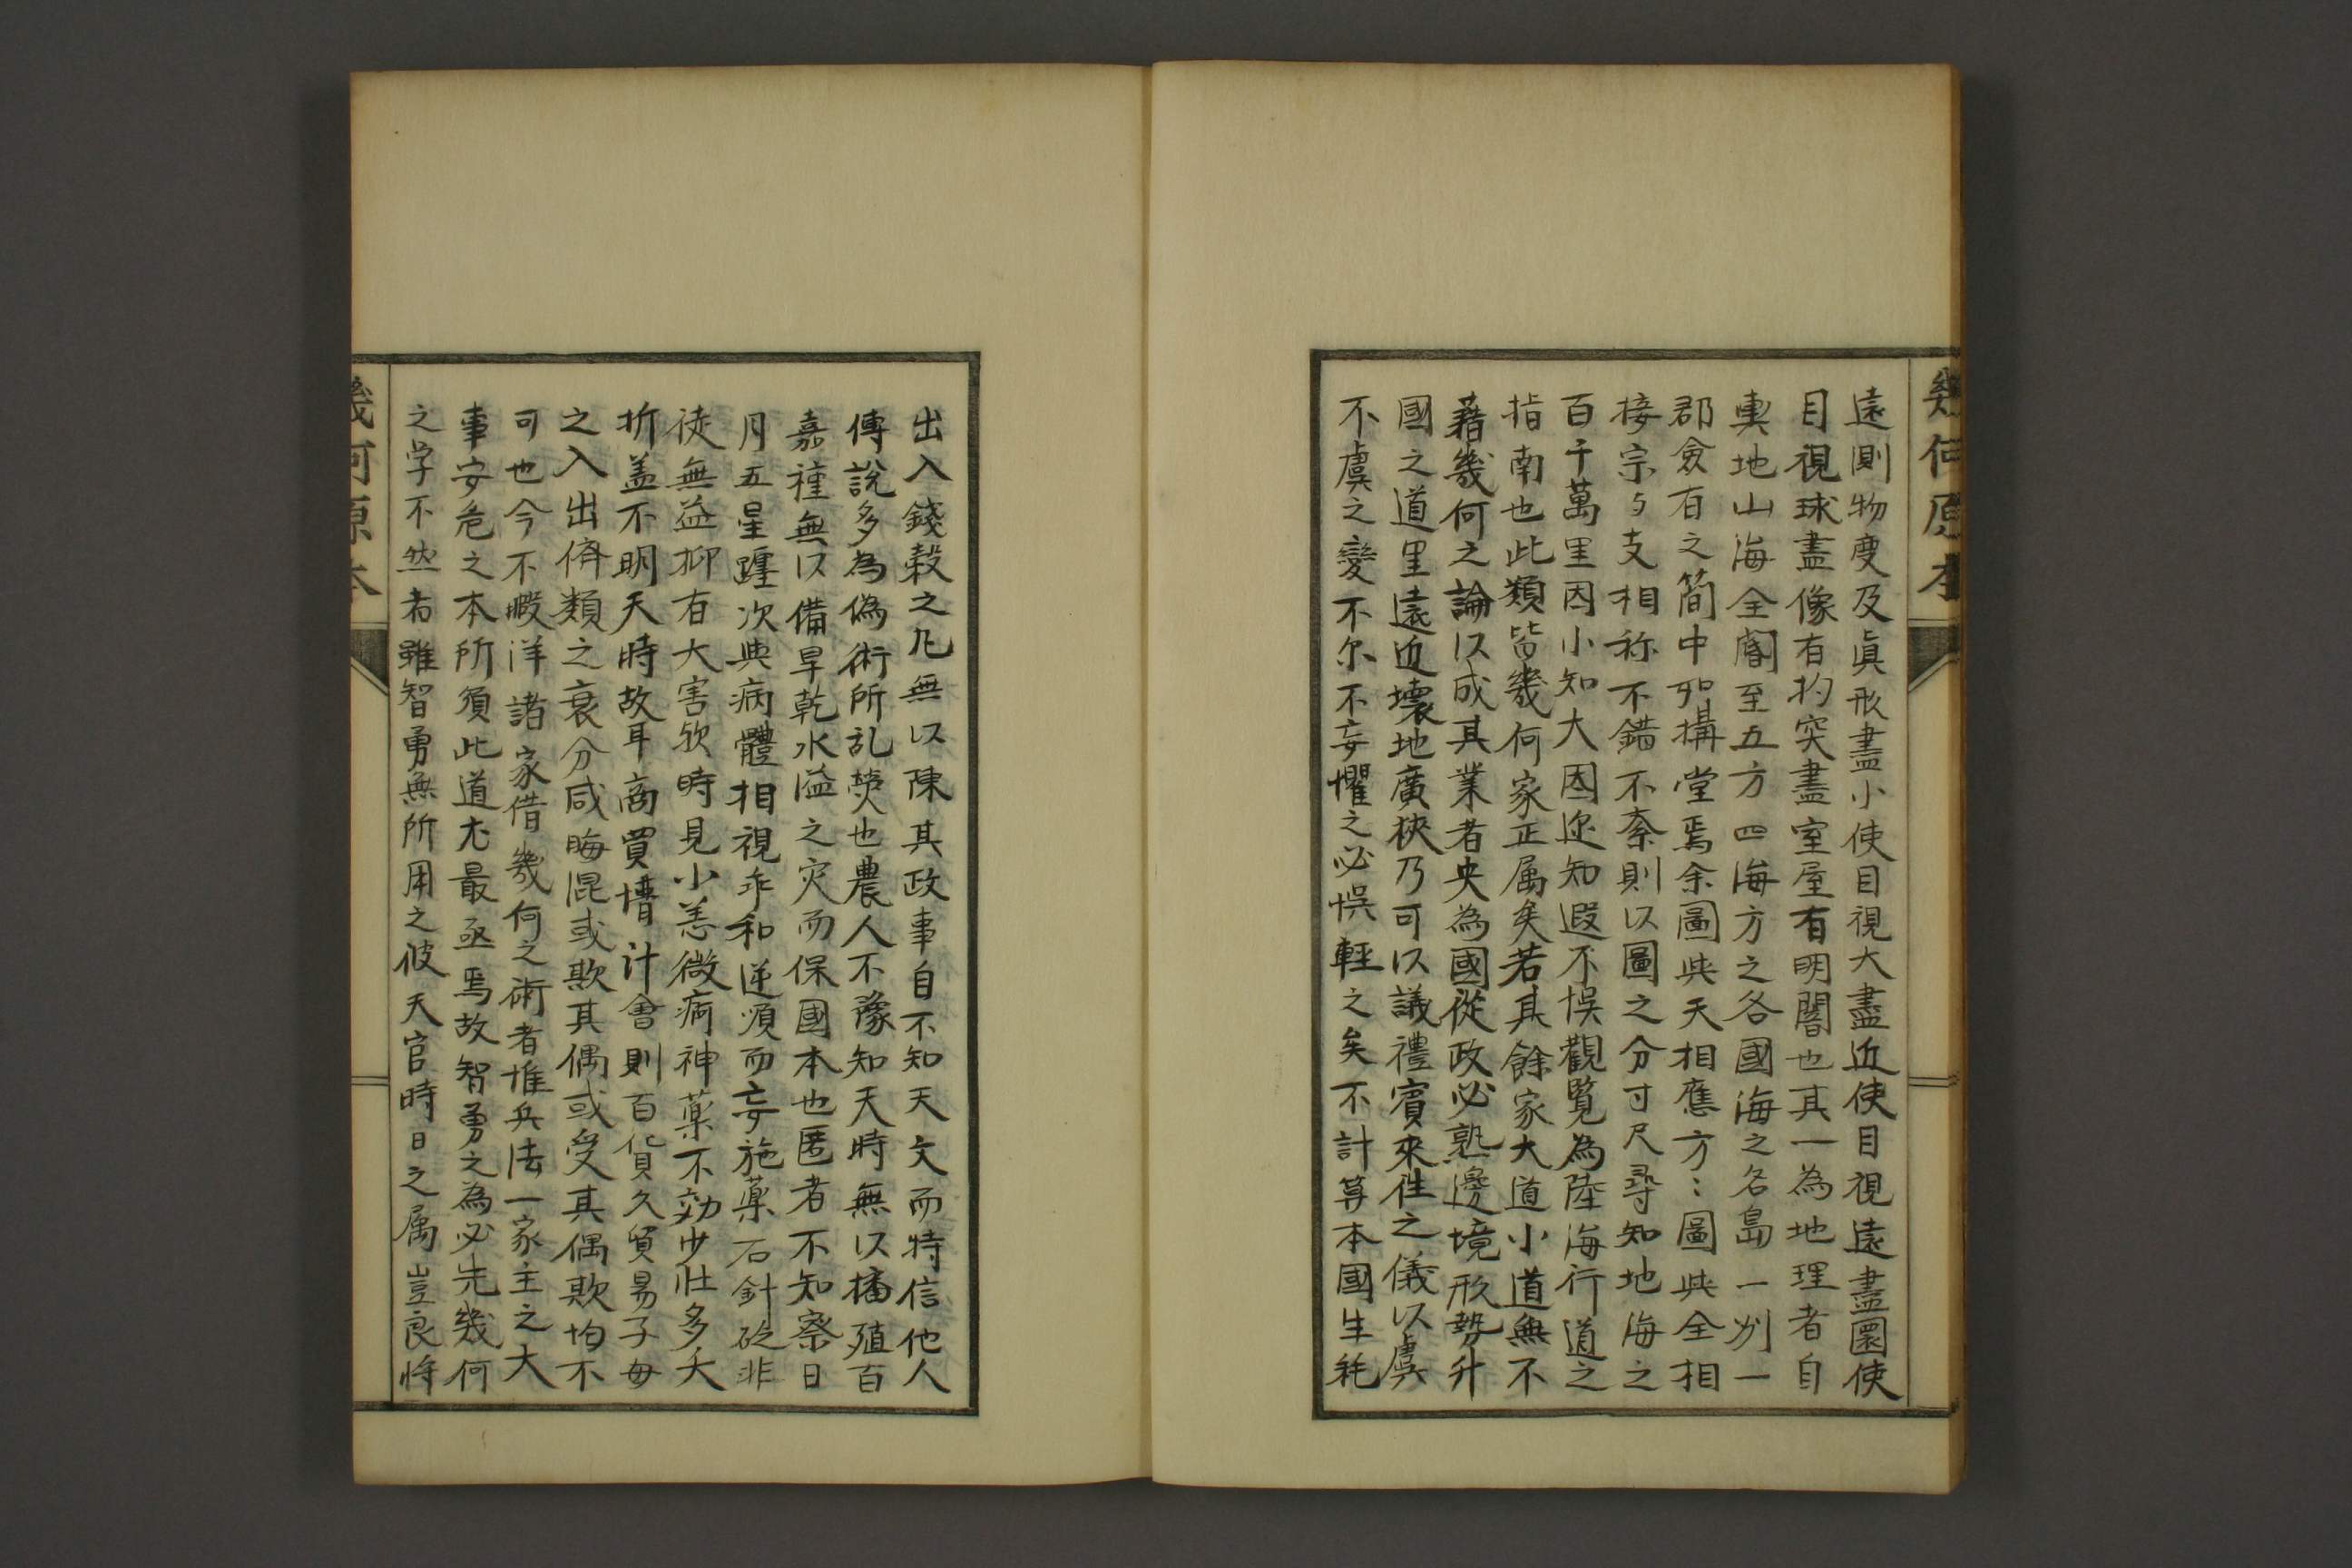 幾何原本
遠則物度及真形畫小使目視大畫近使目視遠畫圜使
目視球畫像有抝突畫室屋有明闇也其一為地理者自
輿地山海全圖至五方四海方之各國海之各島一州一
郡僉布之簡中如搆堂焉余圖與天相應方〻圖與全相
接宗与支相称不錯不紊則以圖之分寸尺尋知地海之
百千萬里因小知大因迩知遐不悞觀覧為陸海行道之
指南也此類皆幾何家正属矣若其餘家大道小道無不
藉幾何之論以成其業者夫為國從政必熟邊境形勢升
國之道里遠近壊地廣狹乃可以議禮賓來徃之儀以虞
不虞之變不尔不妄懼之必悞輕之矣不計筭本國生耗
出入錢榖之凡無以陳其政事自不知天文而特信他人
傳說多為偽術所乱熒也農人不豫知天時無以播殖百
嘉種無以備旱乾水溢之灾而保國本也匿者不知察日
月五星躔次與病體相視乖和逆順而妄施藥石針砭非
徒無益抑有大害欤時見小恙微疴神藥不効少壮多夭
折盖不明天時故耳商買懵計會則百貨久貿易子母
之入出儕類之衰分咸晦混或欺其偶或受其偶欺均不
可也今不暇洋諸家借幾何之術者惟兵法一家主之大
事安危之本所須此道尤最亟焉故智勇之為必先幾何
之学不然者雖智勇無所用之彼天官時日之属豈良将
幾何原本